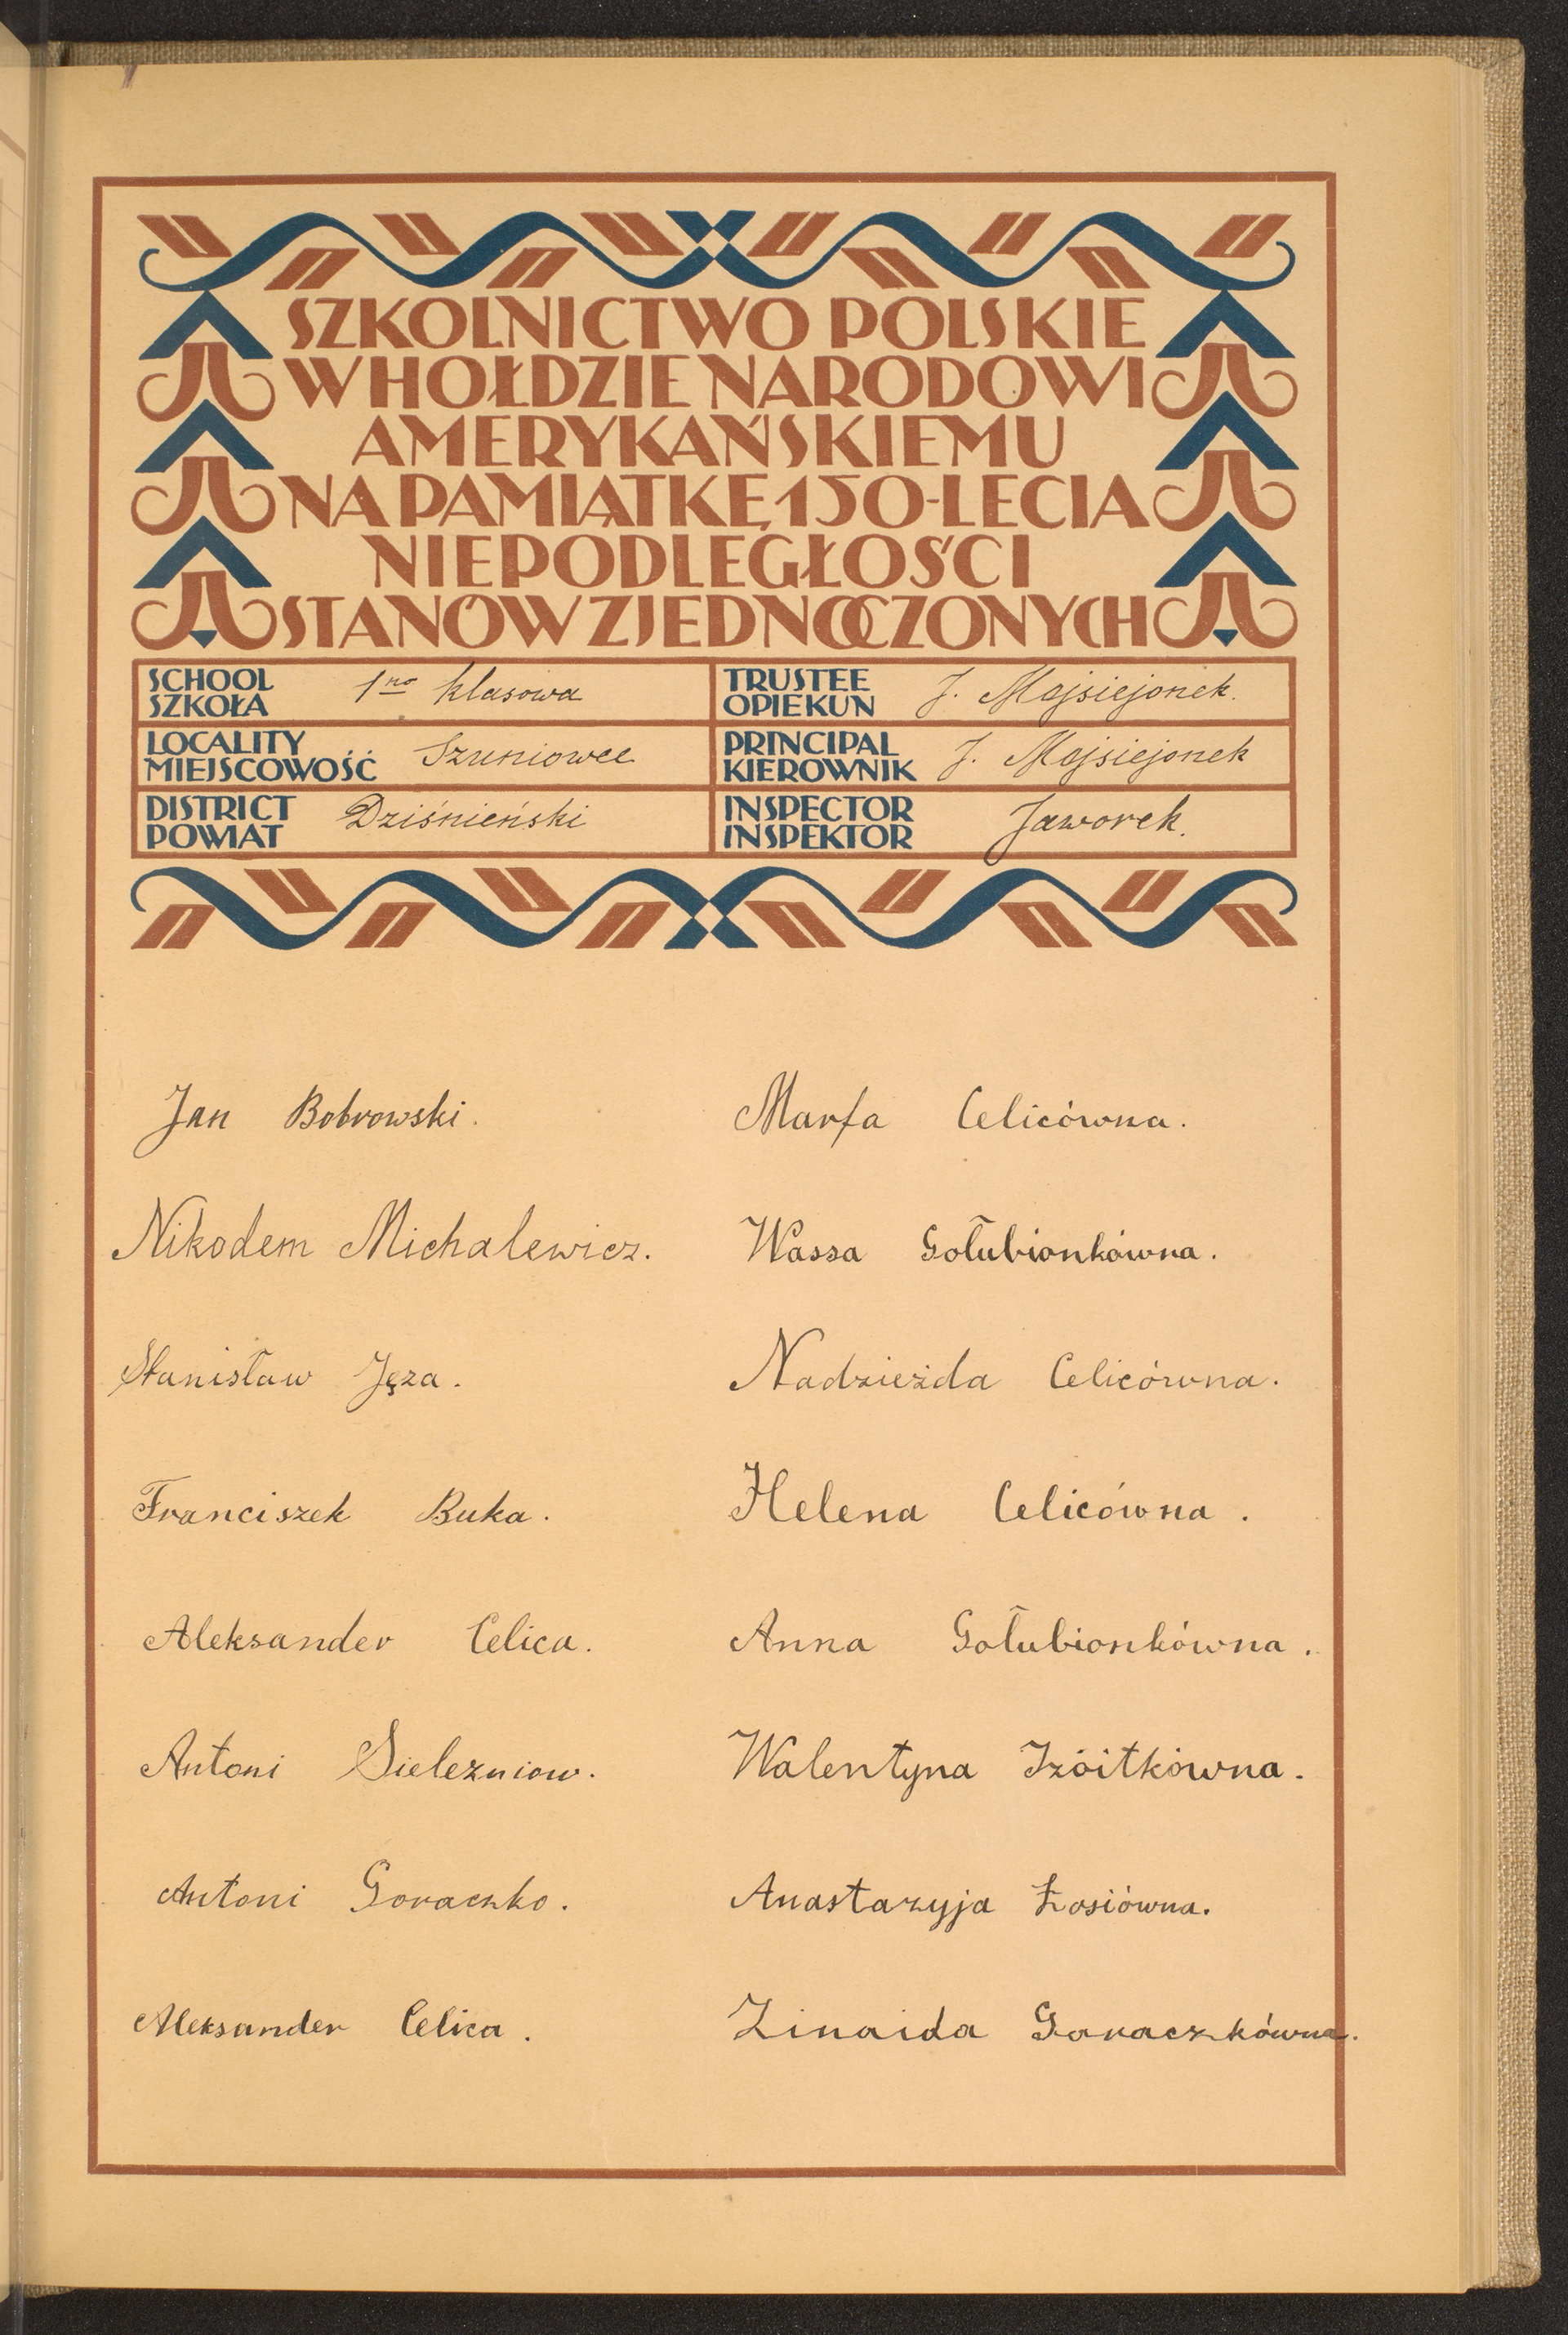 SZKOLNICTWO POLSKIE
W HOŁDZIE NARODOWI
AMERYKAŃSKIEMU
NA PAMIĄTKĘ 150-LECIA
NIEPODLEGŁOŚCI
STANÓW ZJEDNOCZONYCH
SCHOOL
SZKOŁA
1no klasowa
TRUSTEE
OPIEKUN
J. Mojsiejonek.
LOCALITY
MIEJSCOWOŚĆ
Szuniowce
PRINCIPAL
KIEROWNIK
J. Mojsiejonek
DISTRICT
POWIAT
Dziśnieński
INSPECTOR
INSPEKTOR
Jaworek.
Jan Bobrowski.
Nikodem Michalewicz.
Stanisław Jęza.
Franciszek Buka.
Aleksander Celica.
Antoni Sielezniow.
Antoni Goraczko.
Aleksander Celica.
Marfa Celicówna.
Wassa Gołubionkówna.
Nadzieżda Celicówna.
Helena Celicówna.
Anna Gołubionkówna.
Walentyna Izóitkówna.
Anastazyja Łosiówna.
Zinaida Goraczkówna.